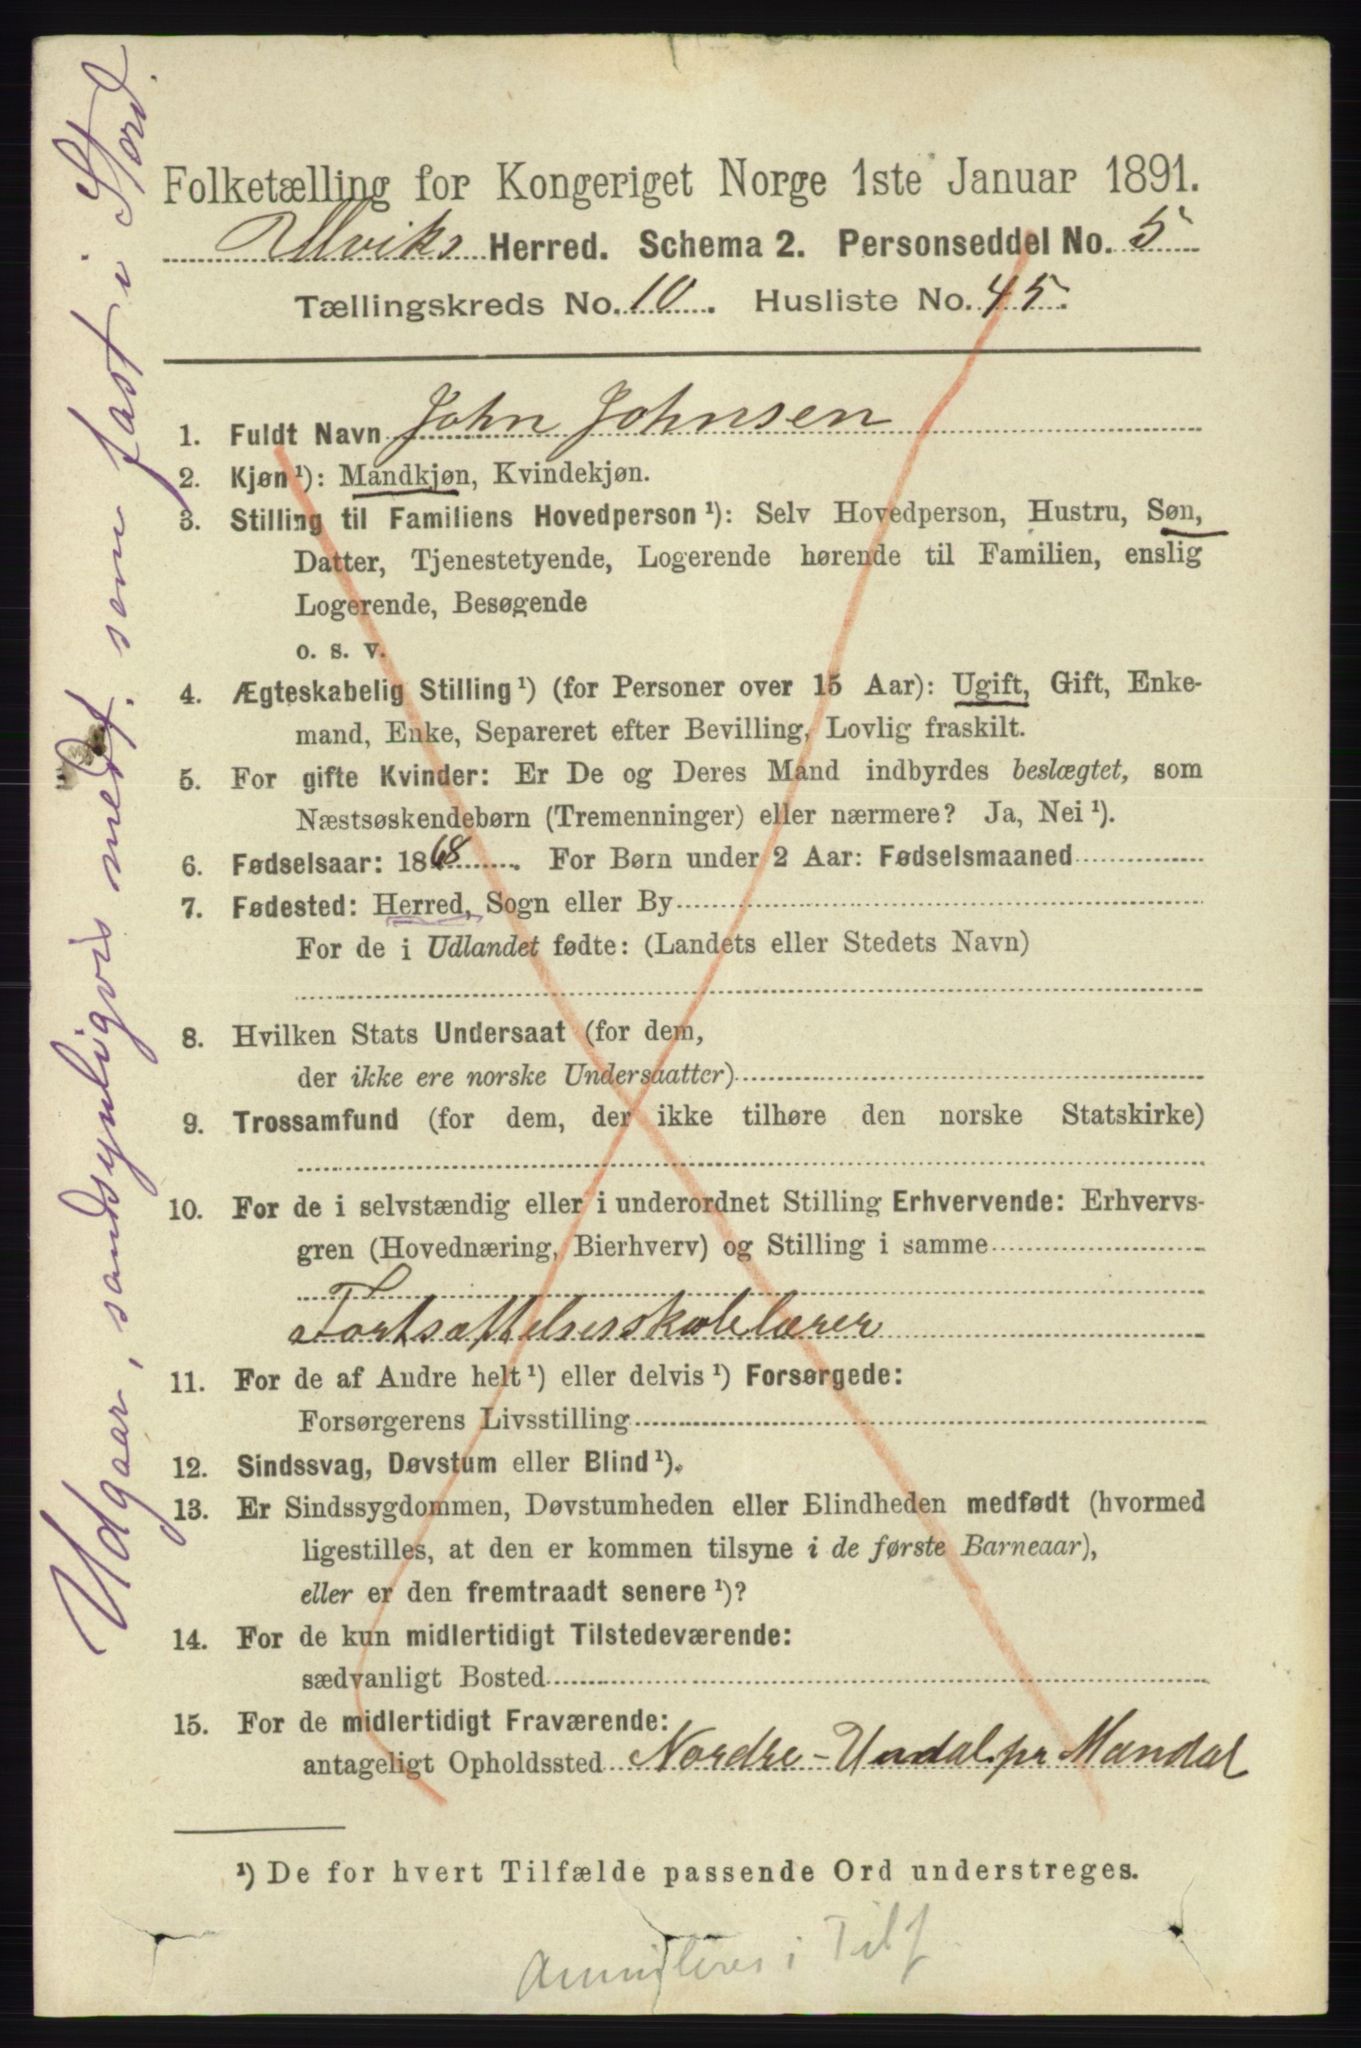 Folketælling for Kongeriget Norge 1ste Januar 1891.
Ulviks Herred. Schema 2. Personseddel No. 5
Tællingskreds No. 10. Husliste No. 45.
1. Fuldt Navn John Johnsen
2. Kjøn¹): Mandkjøn, Kvindekjøn.
3. Stilling til Familiens Hovedperson¹): Selv Hovedperson, Hustru, Søn,
Datter, Tjenestetyende, Logerende hørende til Familien, enslig
Logerende, Besøgende
o. s. v.
4. Ægteskabelig Stilling¹) (for Personer over 15 Aar): Ugift, Gift, Enke-
mand, Enke, Separeret efter Bevilling, Lovlig fraskilt.
5. For gifte Kvinder: Er De og Deres Mand indbyrdes beslægtet, som
Næstsøskendebørn (Tremenninger) eller nærmere? Ja, Nei¹).
6. Fødselsaar: 1868. For Børn under 2 Aar: Fødselsmaaned
7. Fødested: Herred, Sogn eller By
For de i Udlandet fødte: (Landets eller Stedets Navn)
8. Hvilken Stats Undersaat (for dem,
der ikke ere norske Undersaatter)
9. Trossamfund (for dem, der ikke tilhøre den norske Statskirke)
10. For de i selvstændig eller i underordnet Stilling Erhvervende: Erhvervs-
gren (Hovednæring, Bierhverv) og Stilling i samme
Fortsættelsesskolelærer
11. For de af Andre helt¹) eller delvis¹) Forsørgede:
Forsørgerens Livsstilling
12. Sindssvag, Døvstum eller Blind¹).
13. Er Sindssygdommen, Døvstumheden eller Blindheden medfødt (hvormed
ligestilles, at den er kommen tilsyne i de første Barneaar),
eller er den fremtraadt senere¹)?
14. For de kun midlertidigt Tilstedeværende:
sædvanligt Bosted
15. For de midlertidigt Fraværende:
antageligt Opholdssted Nordre-Undal pr Mandal
¹) De for hvert Tilfælde passende Ord understreges.
i Tilf
Udgaar, sandsynligvis medt. som fast i Stord.